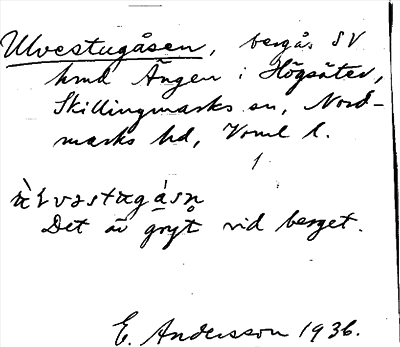 Ulvestugåsen, bergås SV
hmd Ängen i Högsäter,
Skillingmarks sn, Nord-
marks hd, Vrml l.
1.
Det är gryt vid berget.
E. Andersson 1936.